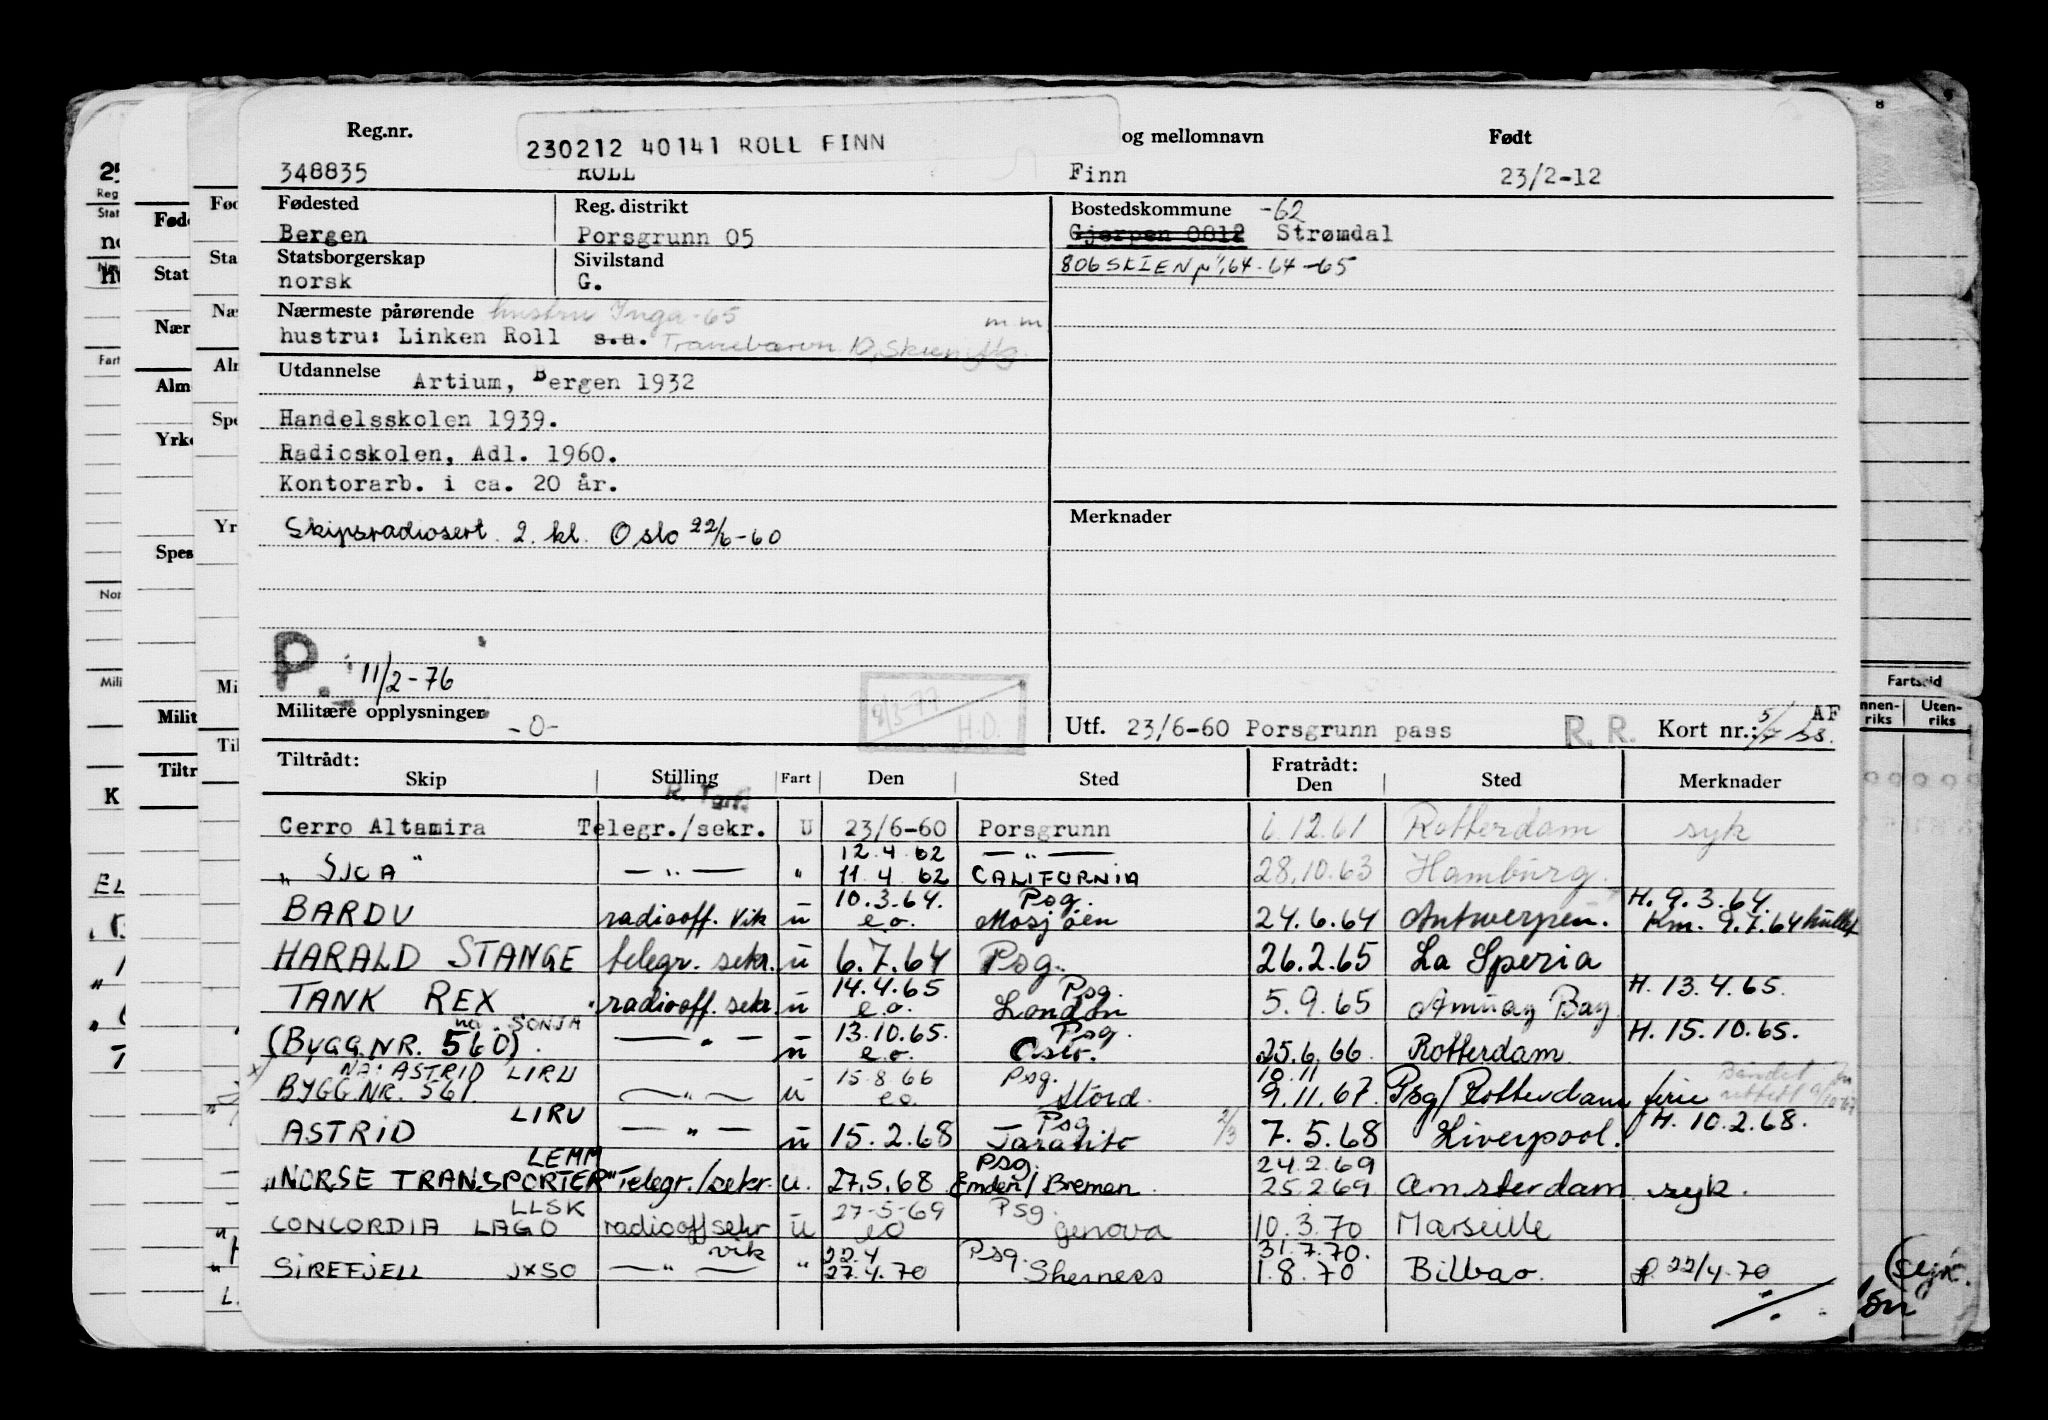 Reg.nr. og mellomnavn Født
230212 40141 ROLL FINN
348835 ROLL Finn 23/2-12
Fødested Reg. distrikt Bostedskommune -62
Bergen Porsgrunn 05 Gjerpen 0812 Strømdal
Statsborgerskap Sivilstand 806 SKIEN
norsk G.
Nærmeste pårørende hustru Inga -65
hustru: Linken Roll s.a.
Utdannelse Artium, Bergen 1932
Handelsskolen 1939.
Radioskolen, Adl. 1960.
Kontorarb. i ca. 20 år.
Merknader
Skipsradiosert. 2. kl. Oslo 22/6-60
P. 11/2-76
8/3-77 H.D.
Militære opplysninger -0-
Utf. 23/6-60 Porsgrunn pass R. R. Kort nr.: AF
Tiltrådt: Fratrådt:
Skip Stilling Fart Den Sted Den Sted Merknader
Cerro Altamira Telegr./sekr. U 23/6-60 Porsgrunn 6.12.61 Rotterdam syk
12.4.62 — " —
" SJOA " — " — " 11.4.62 CALIFORNIA 28.10.63 Hamburg.
10.3.64. Psg. H. 9.3.64.
BARDU radiooff. vik u e.o. Mosjøen 24.6.64 Antwerpen. Km. 9.7.64 hullet
HARALD STANGE telegr. sekr. u 6.7.64 Psg. 26.2.65 La Spezia
14.4.65 Psg. H. 13.4.65.
TANK REX radiooff. sekr u e.o. London 5.9.65 Amuay Bay
nå. SONJA 13.10.65. Psg. H. 15.10.65.
(BYGG NR. 560). — " — u e.o. Oslo. 25.6.66. Rotterdam
Nå: ASTRID LIRU 15.8.66 Psg. 10.11
BYGG NR. 561. — " — u e.o. Stord. 9.11.67. Psg/Rotterdam ferie
LIRU Psg. H. 10.2.68.
ASTRID — " — u 15.2.68 Taranto 2/3 7.5.68 Liverpool.
LEMM Psg. 24.2.69
"NORSE TRANSPORTER" Telegr./sekr. u. 27.5.68 Emden/Bremen. 25.2.69 Amsterdam syk.
LLSK 27-5-69 Psg.
CONCORDIA LAGO radiooff sekr u eo Genova 10.3.70 Marseille
vik 22.4 Psg. 31.7.70.
SIREFJELL JXSO — " — " 27.4.70 Sherness 1.8.70 Bilbao. 22/4.70